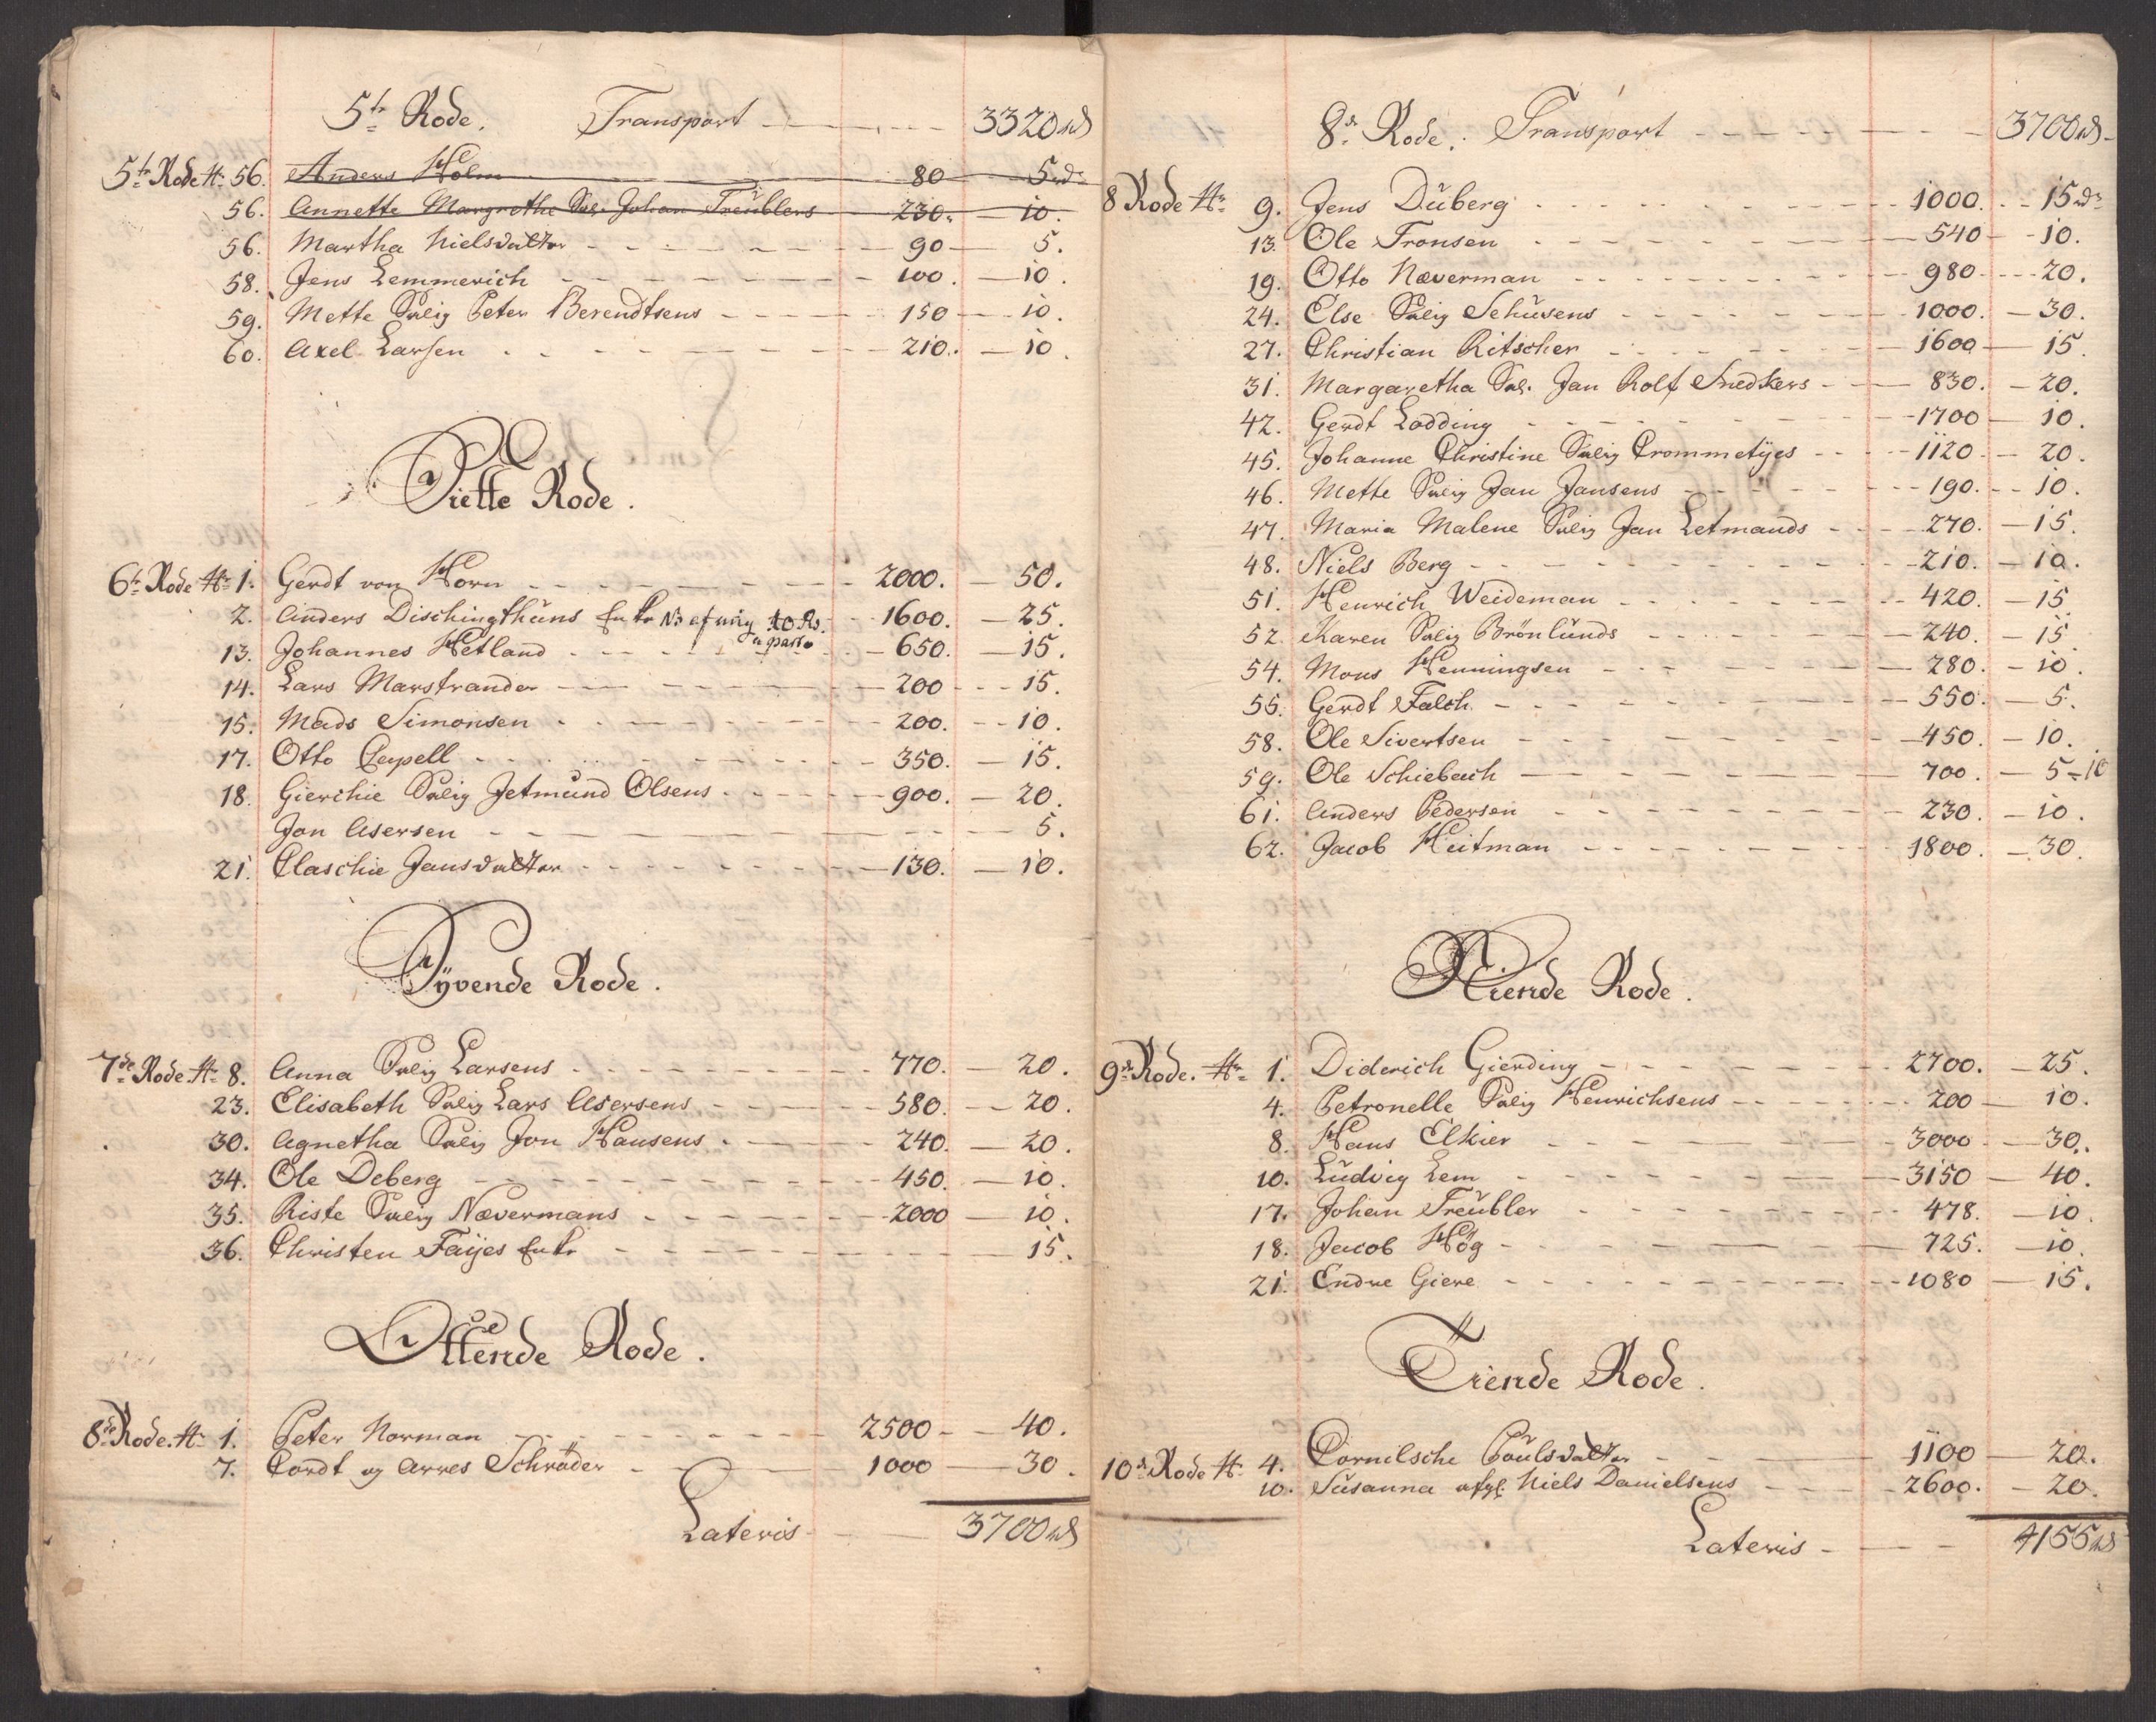 5te Rode. Transport 3320 rd
5te Rode No 56. Anders Holm 80 5 rdr
56. Annette Margrethe Sal. Johan Treüblers 230. 10.
56. Martha Nielsdatter 90 5.
58. Jens Lemmerich 100. 10.
59. Mette Salig Peter Berendtsens 150 10.
60. Axel Larsen 210. 10.
Siette Rode.
6te Rode No 1. Gerdt von Horn 2000. 50.
2. Anders Dischingthüns Enke 1600. 25.
13. Johannes Hetland 650. 15.
14. Lars Marstrander 200 15.
15. Mads Simonsen 200. 10.
17. Otto Capell 350. 15.
18. Gierchie Salig Jetmund Olsens 900. 20.
Jon Asersen 5.
21. Claschie Jansdatter 130. 10.
Syvende Rode.
7de Rode No 8. Anna Salig Larsens 770. 20.
23. Elisabeth Salig Lars Asersens 580. 20.
30. Agnetha Salig Jon Hansens 240. 20.
34. Ole Deberg 450. 10.
35. Riste Salig Nævermans 2000 10.
36. Christen Faÿes Enke 15.
Ottende Rode.
8de Rode. No 1. Peter Norman 2500 40.
7. Cordt og Arres Schröder 1000 30.
Lateris 3700 rd
8de Rode. Transport 3700 rd
8 Rode No 9. Jens Düberg 1000. 15 rdr
13. Ole Fronsen 540 10.
19. Otto Næverman 980 20.
24. Else Salig Schüsens 1000. 30.
27. Christian Ritscher 1600 15.
31. Margaretha Sal. Jan Rolf Snedkers 830. 20.
42. Gerdt Lodding 1700 10.
45. Johanne Christine Salig Crommetÿes 1120. 20.
46. Mette Salig Jan Jansens 190. 10.
47. Maria Malene Salig Jan Letmands 270. 15.
48. Niels Berg 210. 10.
51. Henrich Weideman 420. 15.
52. Karen Salig Brönlünds 240. 15
54. Mons Henningsen 280. 10.
55. Gerdt Falch 550. 5.
58. Ole Sivertsen 450. 10.
59. Ole Schiebach 700. 5 - 10
61. Anders Pedersen 230. 10.
62. Jacob Heitman 1800. 30.
Niende Rode.
9de Rode. No 1. Diderich Gierding 2700. 25.
4. Petronelle Salig Henrichsens 200 10.
8. Hans Elkier 3000 30.
10. Lüdvig Lem 3150 40.
17. Johan Treübler 478. 10.
18. Jacob Hög 725. 10.
21. Endre Giere 1080 15.
Tiende Rode.
10de Rode No 4. Cornilsche Poulsdatter 1100 20.
10. Süsanna afgl. Niels Danielsens 2600. 20.
Lateris 4155 rd